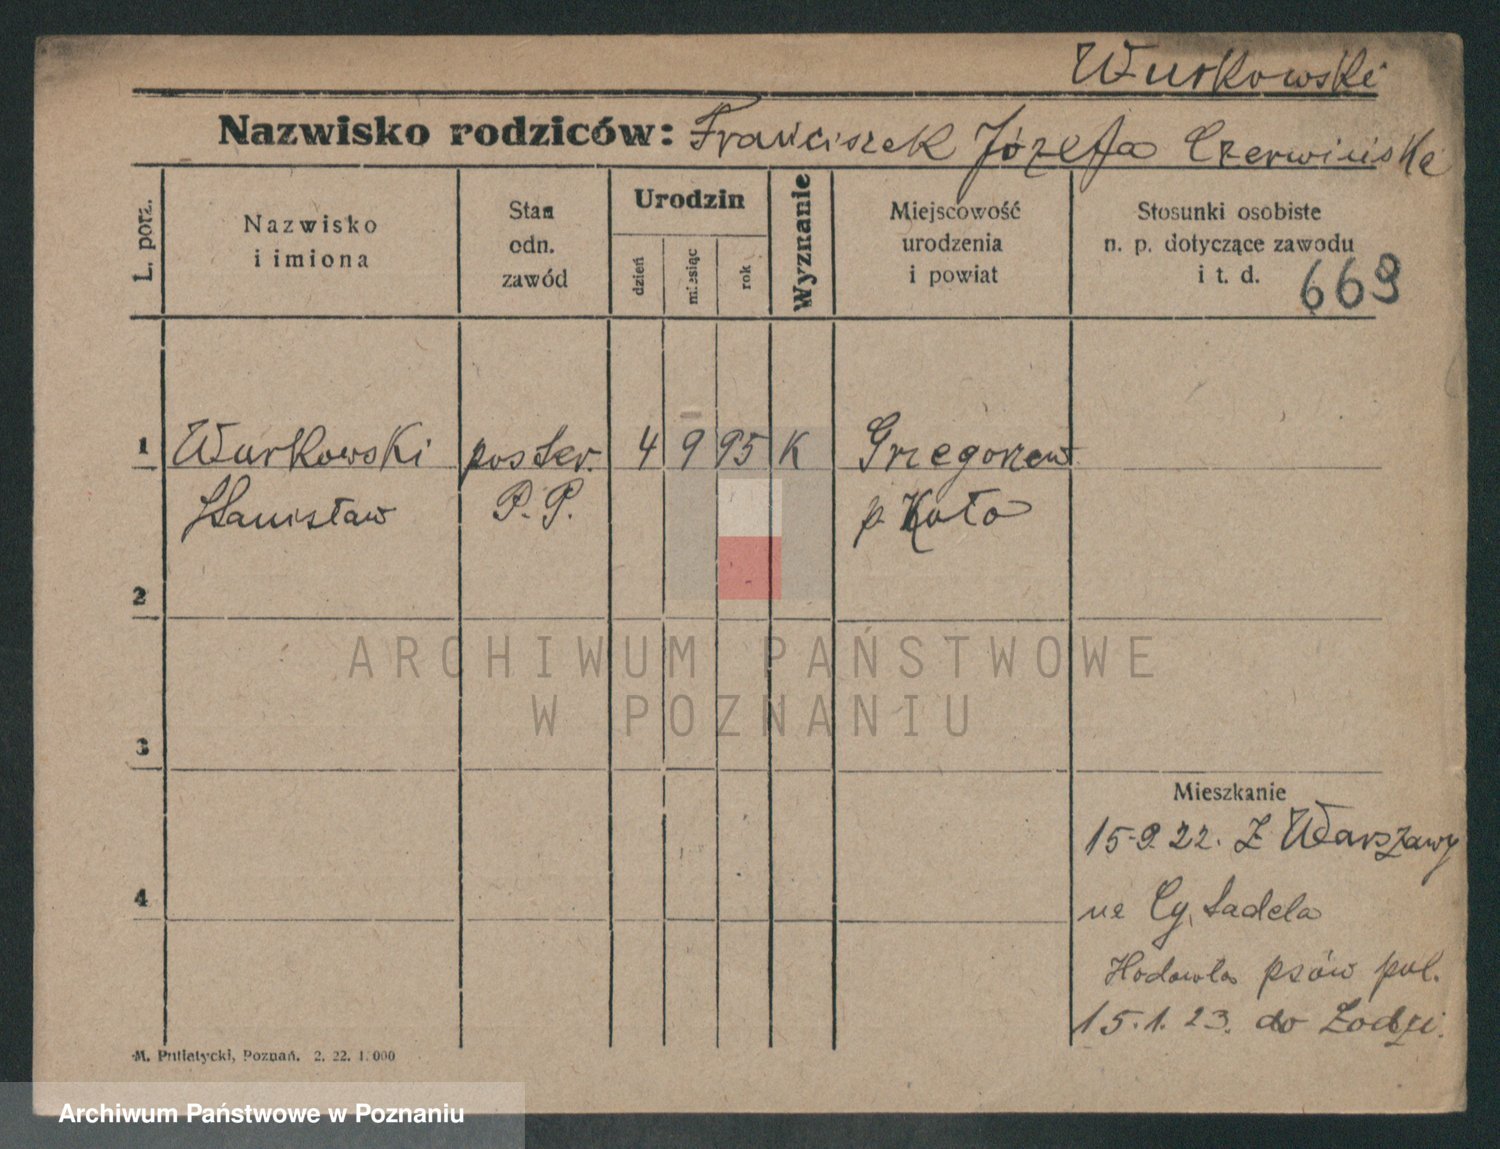 Wurkowski
Nazwisko rodziców: Franciszek Józefa Czerwińska
L. porz.
Nazwisko
i imiona
Stan
odn.
zawód
Urodzin
dzień
miesiąc
rok
Wyznanie
Miejscowość
urodzenia
i powiat
Stosunki osobiste
n. p. dotyczące zawodu
i t. d.
669
1 Wurkowski poster. 4 9 95 K Grzegorzew
Stanisław P. P. p. Koło
2
ARCHIWUM PAŃSTWOWE
W POZNANIU
3
Mieszkanie
15.9.22. Z Warszawy
4
na Cytadela
Hodowla psów pol.
15.1.23. do Łodzi.
M. Putiatycki, Poznań. 2. 22. 1.000
Archiwum Państwowe w Poznaniu